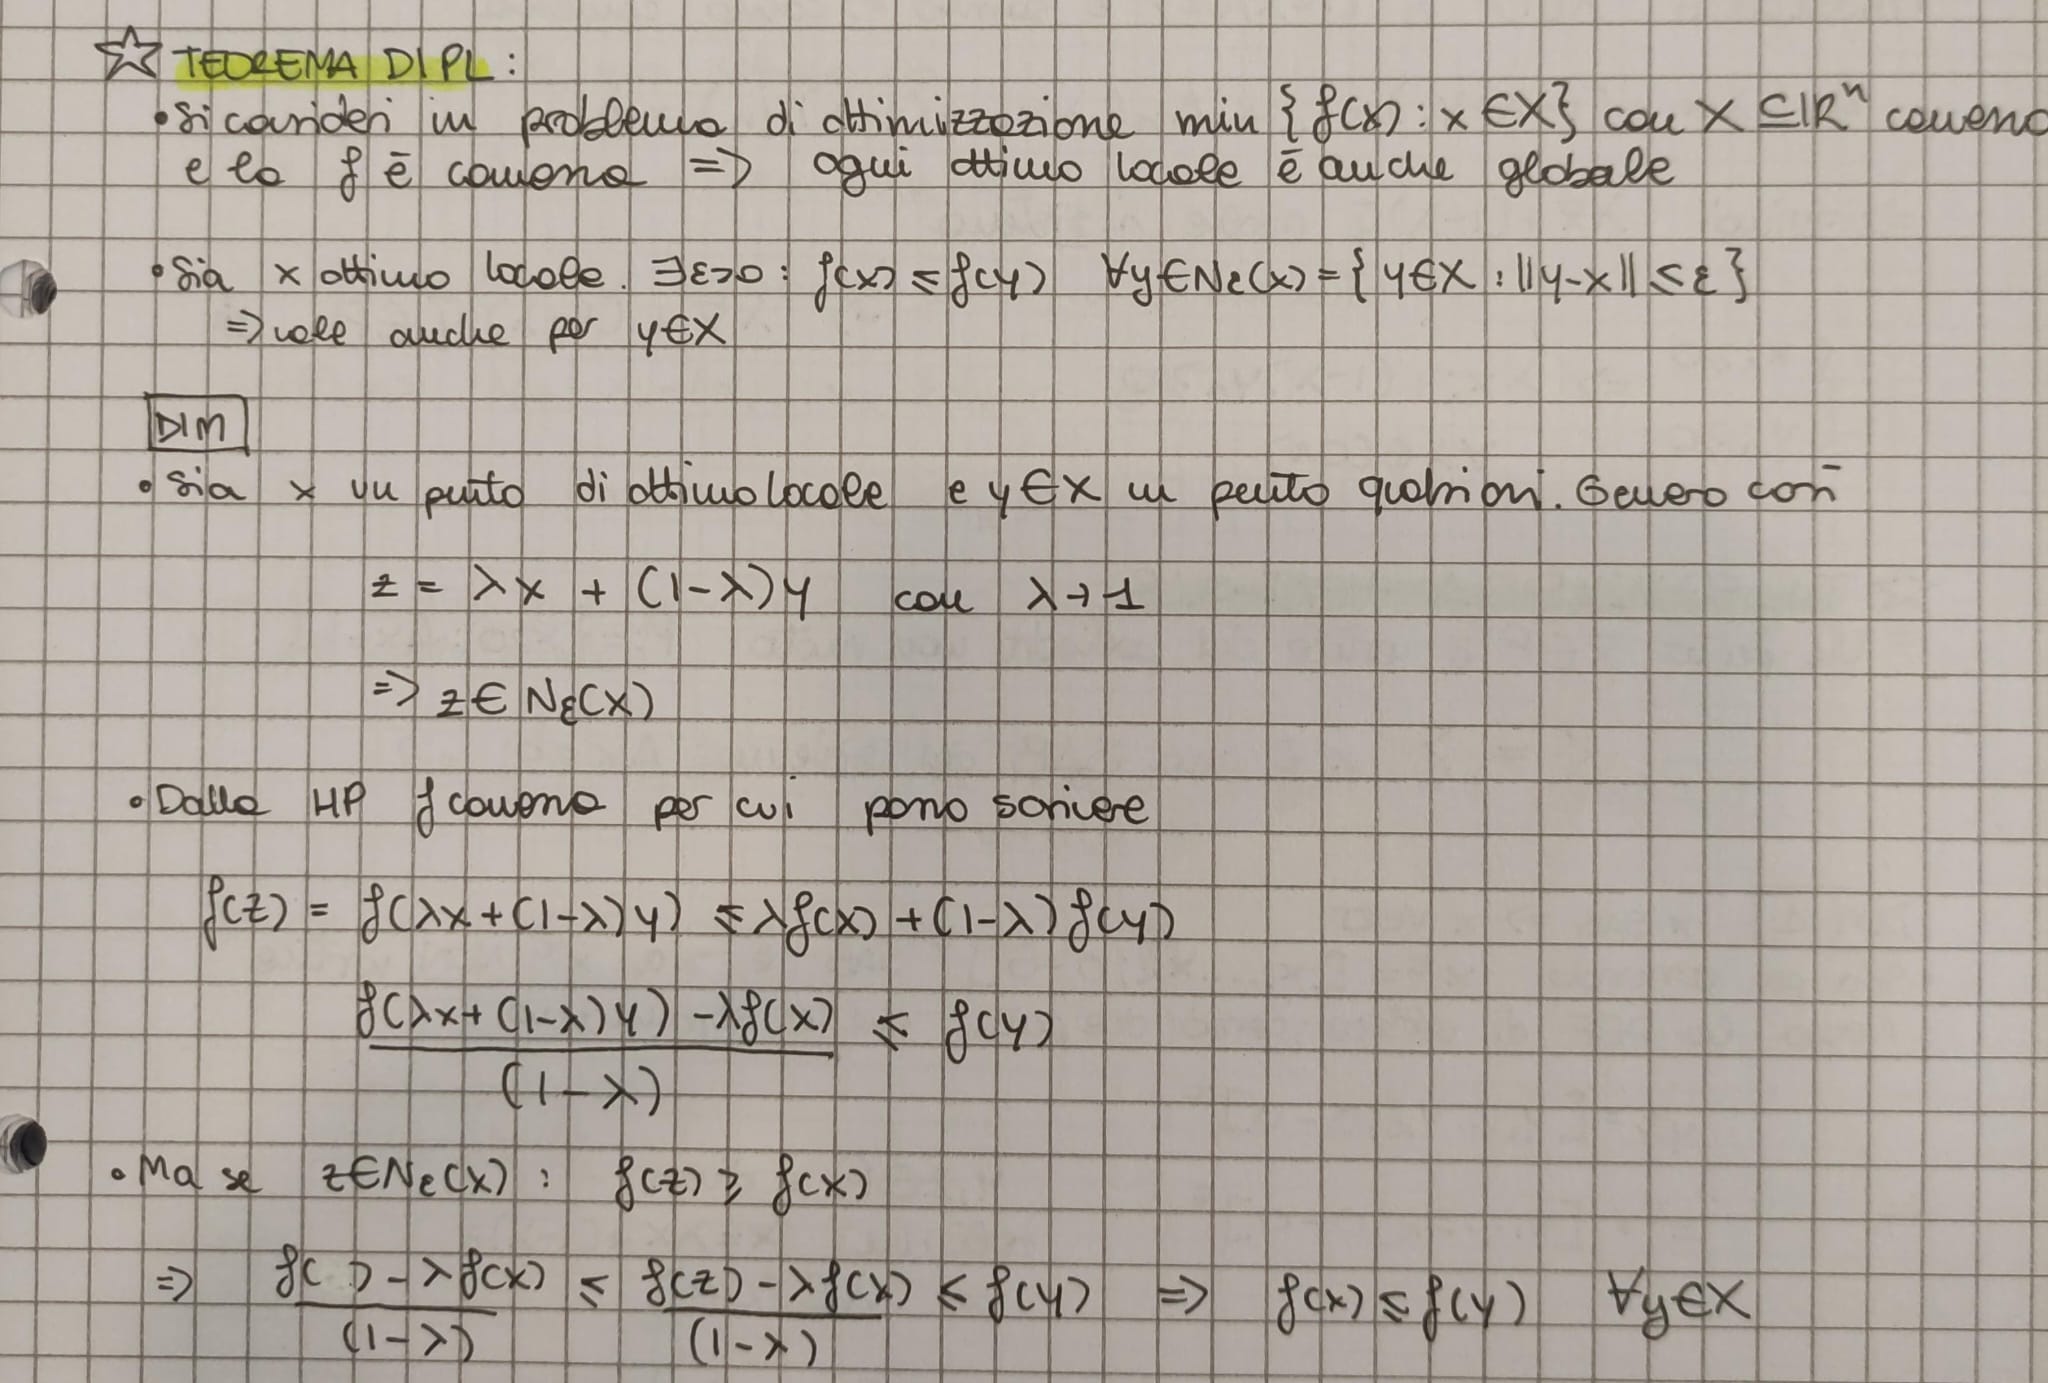 ☆ TEOREMA DI PL:
• Si consideri un problema di ottimizzazione min {f(x) : x ∈ X} con X ⊆ ℝⁿ convesso
e la f è convessa => ogni ottimo locale è anche globale
• Sia x ottimo locale. ∃ε>0 : f(x) ≤ f(y) ∀y∈Nε(x) = {y∈X : ||y-x|| ≤ ε}
=> vale anche per y∈X
DIM
• Sia x un punto di ottimo locale e y∈X un punto qualsiasi. Genero così
z = λx + (1-λ)y con λ→1
=> z ∈ Nε(x)
• Dalla HP f convessa per cui posso scrivere
f(z) = f(λx+(1-λ)y) ≤ λf(x) + (1-λ)f(y)
f(λx+(1-λ)y) - λf(x) ≤ f(y)
(1-λ)
• Ma se z∈Nε(x) : f(z) ≥ f(x)
=> f( ) - λf(x) ≤ f(z) - λf(x) ≤ f(y) => f(x) ≤ f(y) ∀y∈X
(1-λ) (1-λ)